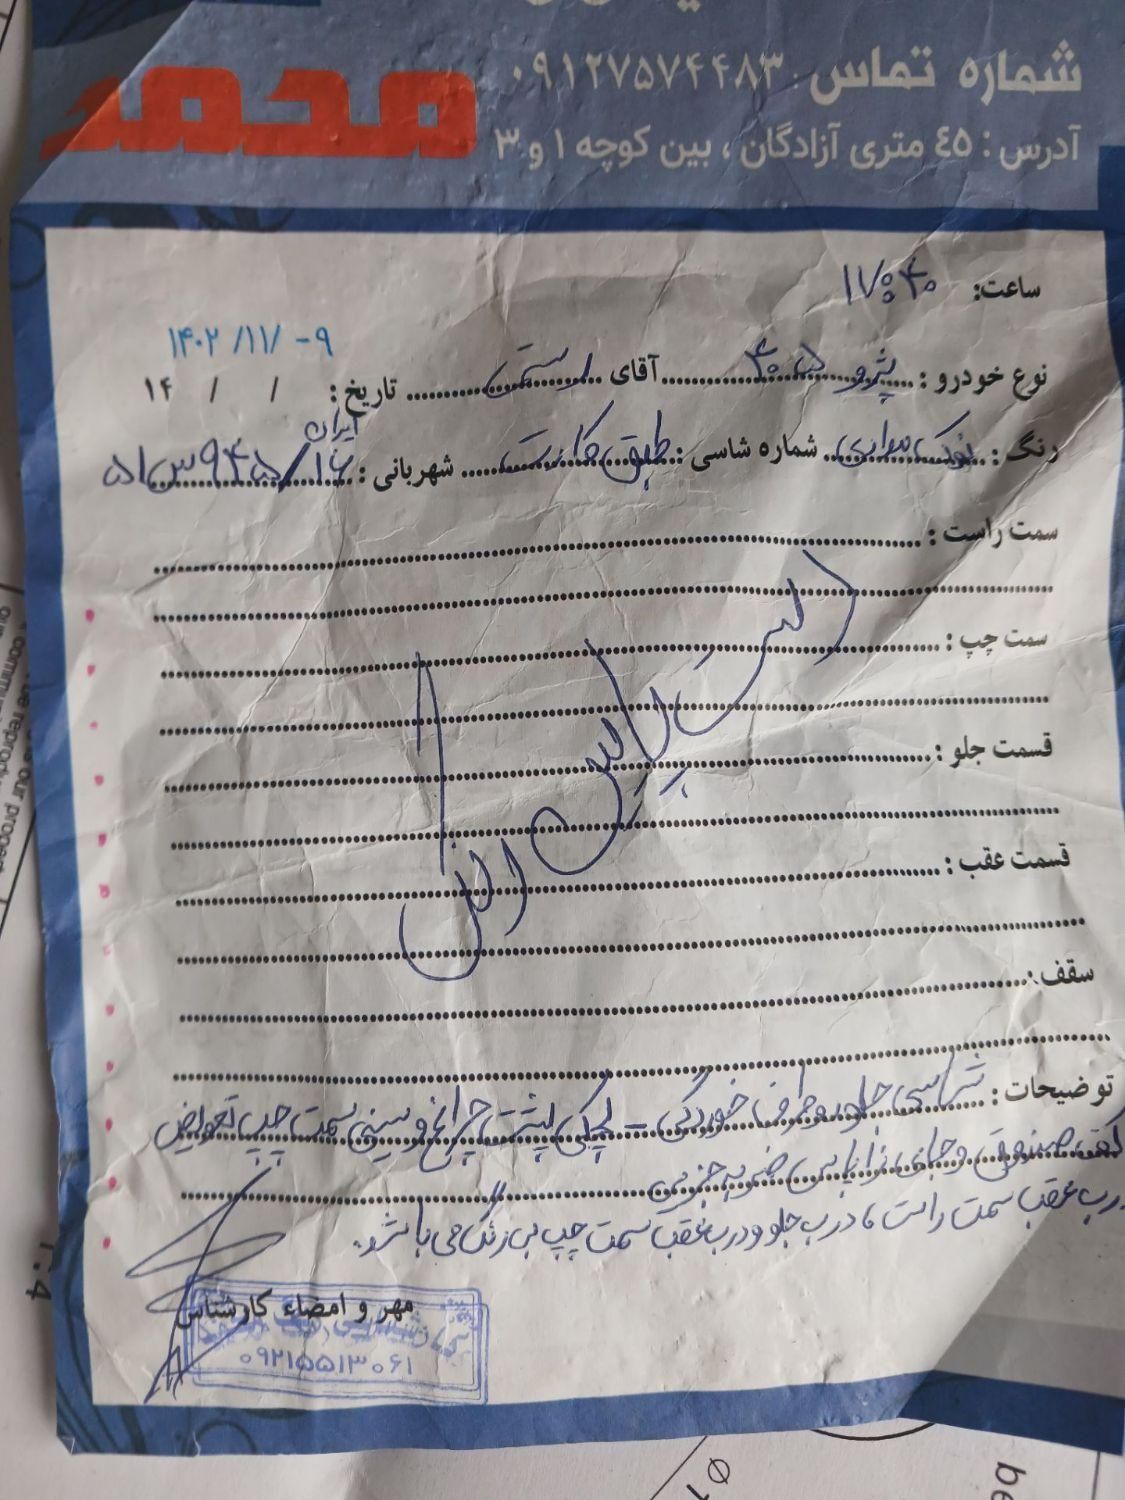 شماره تماس: ۰۹۱۲۷۵۷۴۴۸۳
محمد
آدرس: ٤٥ متری آزادگان، بین کوچه ۱ و ۳
ساعت: ۱۷:۴۰
۱۴۰۲/۱۱/-۹
نوع خودرو: پژو ۴۰۵ آقای رستمی تاریخ: / / ۱۴
رنگ: نوک مدادی شماره شاسی: طبق کارت شهربانی: ایران ۱۶/ ۵۱س۹۴۵
سمت راست:
سمت چپ:
قسمت جلو:
قسمت عقب:
سقف:
توضیحات: شاسی جلو دو طرف خوردگی - لچکی پشت چراغ و سینی سمت چپ تعویض
کف صندوق و جای زاپاس ضربه جزیی
درب عقب سمت راست، درب جلو و درب عقب سمت چپ بی رنگ می باشد.
مهر و امضاء کارشناس
۰۹۲۱۵۵۱۳۰۶۱